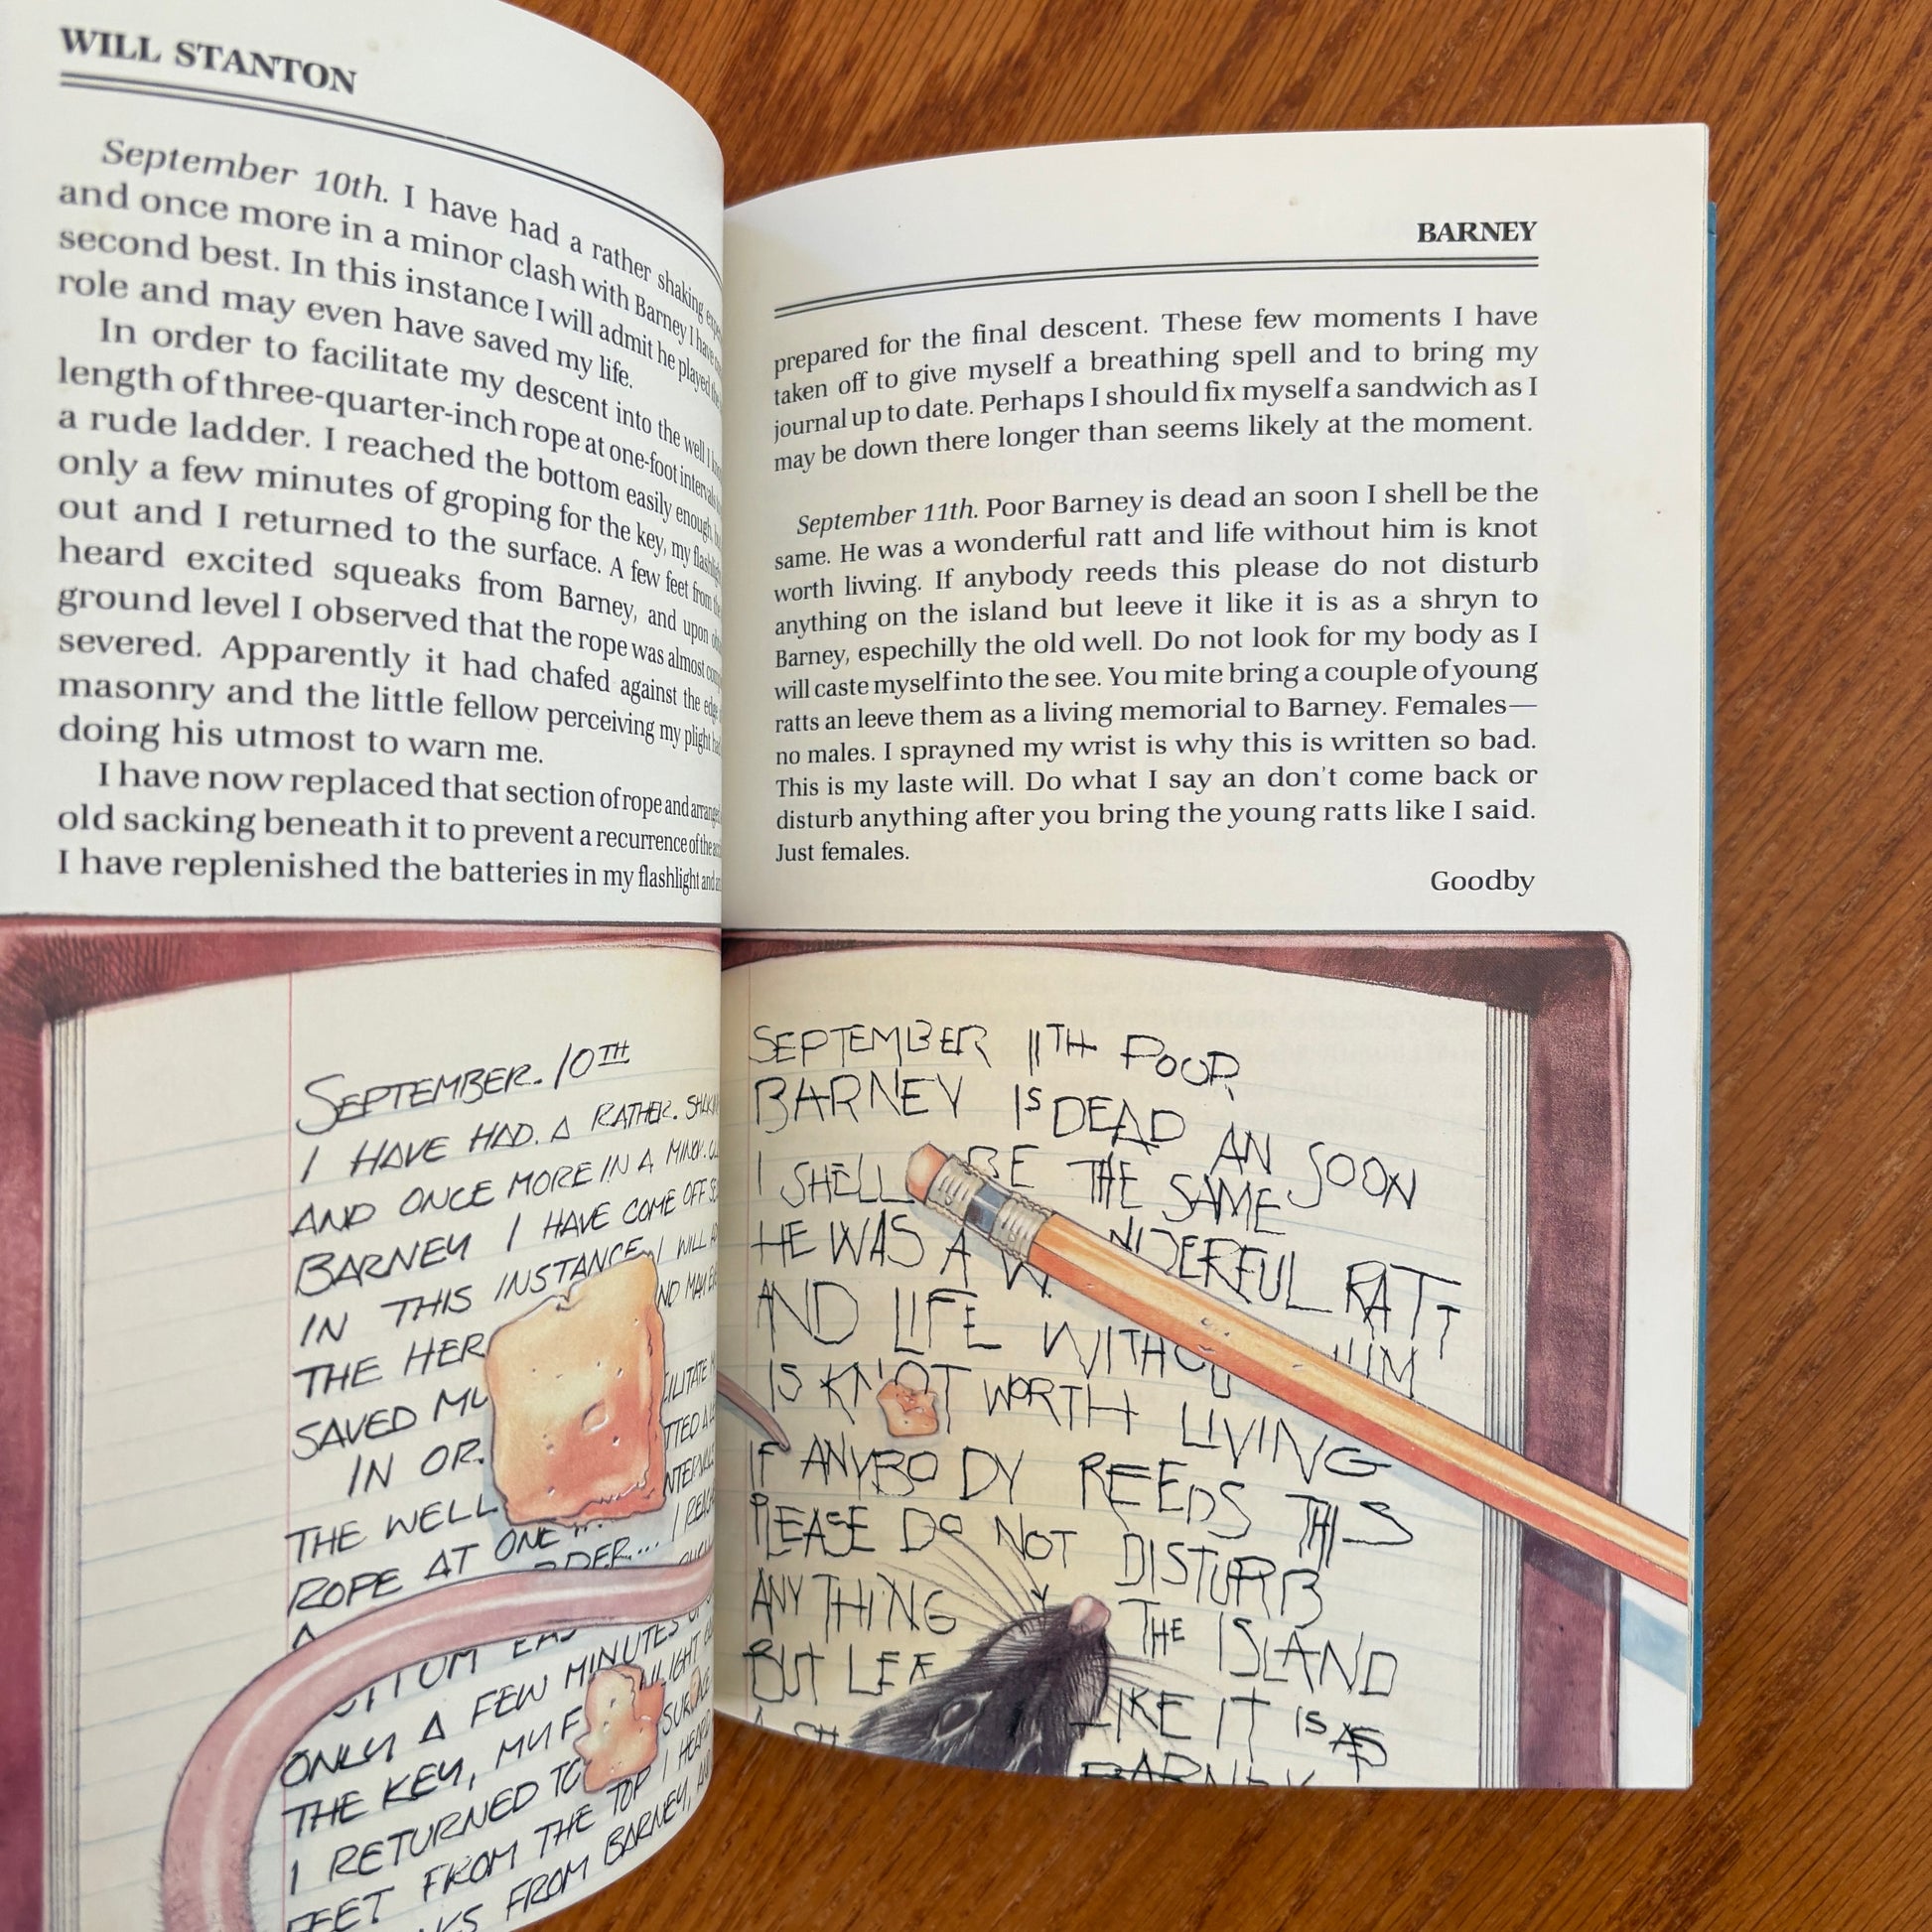 WILL STANTON
September 10th. I have had a rather shaking
and once more in a minor clash with Barney I have
second best. In this instance I will admit he played the
role and may even have saved my life.
In order to facilitate my descent into the well I
length of three-quarter-inch rope at one-foot intervals
a rude ladder. I reached the bottom easily enough,
only a few minutes of groping for the key, my
out and I returned to the surface. A few feet from
heard excited squeaks from Barney, and upon
ground level I observed that the rope was almost
severed. Apparently it had chafed against the edge
masonry and the little fellow perceiving my plight
doing his utmost to warn me.
I have now replaced that section of rope and
old sacking beneath it to prevent a recurrence of the
I have replenished the batteries in my flashlight and
SEPTEMBER. 10TH
I HAVE HAD. A RATHER.
AND ONCE MORE IN A
BARNEY I HAVE COME OFF
IN THIS INSTANCE I WILL
THE
SAVED
IN
THE WELL
ROPE AT ONE
ONLY A FEW MINUTES
THE KEY, MY
I RETURNED TO
FEET FROM THE TOP I
FROM BARNEY,
BARNEY
prepared for the final descent. These few moments I have
taken off to give myself a breathing spell and to bring my
journal up to date. Perhaps I should fix myself a sandwich as I
may be down there longer than seems likely at the moment.
September 11th. Poor Barney is dead an soon I shell be the
same. He was a wonderful ratt and life without him is knot
worth livving. If anybody reeds this please do not disturb
anything on the island but leeve it like it is as a shryn to
Barney, espechilly the old well. Do not look for my body as I
will caste myself into the see. You mite bring a couple of young
ratts an leeve them as a living memorial to Barney. Females—
no males. I sprayned my wrist is why this is written so bad.
This is my laste will. Do what I say an don't come back or
disturb anything after you bring the young ratts like I said.
Just females.
Goodby
SEPTEMBER 11TH POOR
BARNEY IS DEAD AN SOON
I SHELL BE THE SAME
HE WAS A RATT
AND LIFE
IS WORTH LIVING
IF ANYBODY REEDS THIS
PLEASE DO NOT DISTURB
ANYTHING THE ISLAND
BUT IT IS AS